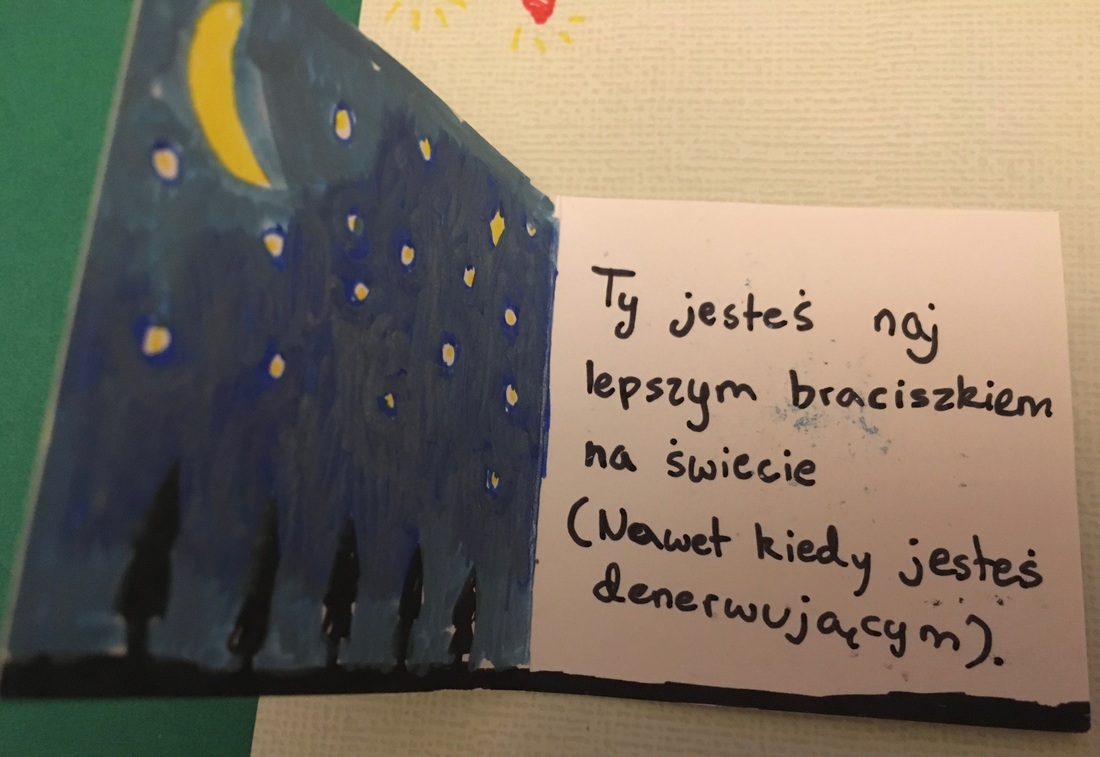 Ty jesteś naj
lepszym braciszkiem
na świecie
(Nawet kiedy jesteś
denerwującym).